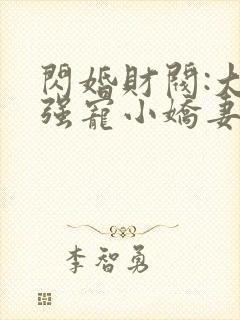 閃婚財閥:大
强寵小嬌妻
李智勇